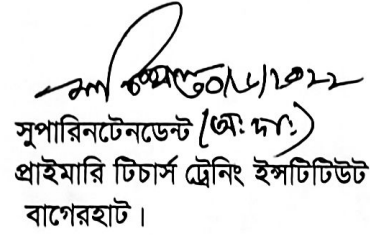 সুপারিনটেনডেন্ট (অ: দা:)
প্রাইমারি টিচার্স ট্রেনিং ইন্সটিটিউট
বাগেরহাট।